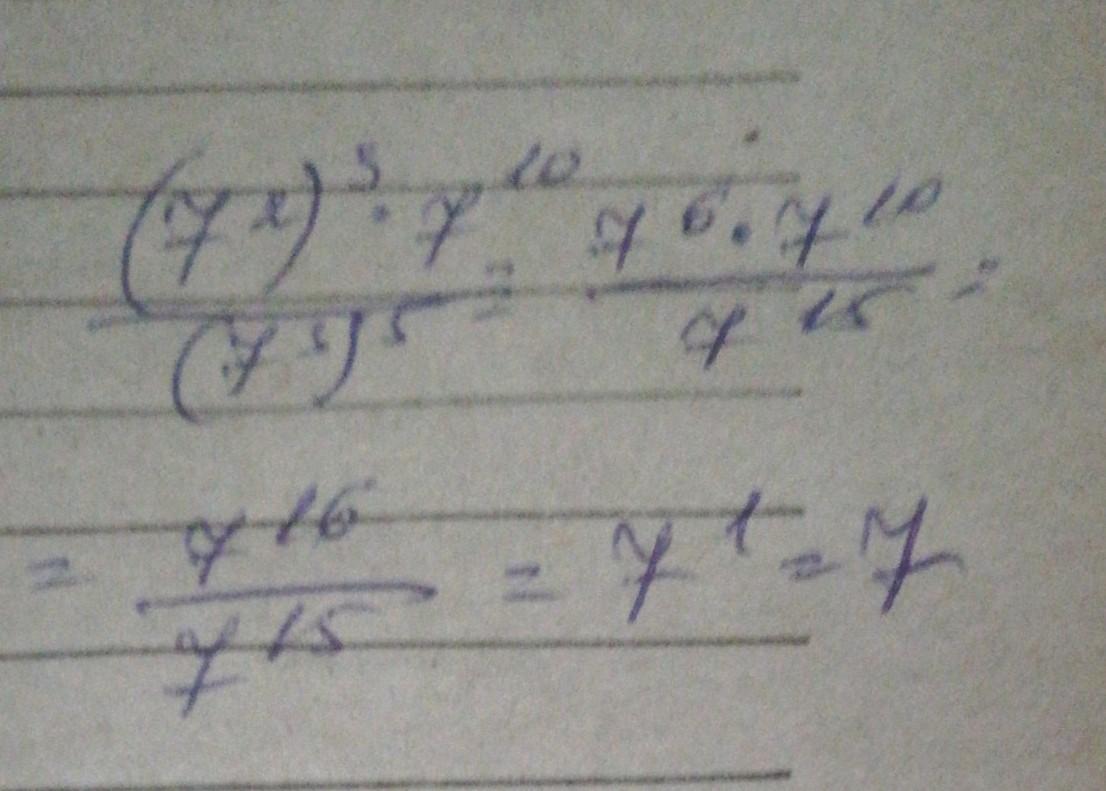 (7²)³ · 7¹⁰ / (7³)⁵ = 7⁶ · 7¹⁰ / 7¹⁵ =
= 7¹⁶ / 7¹⁵ = 7¹ = 7